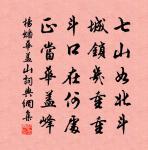 七山如北斗
城鎖幾重重
斗口在何處
正當華蓋峰
楊蟠華蓋山詞典網集